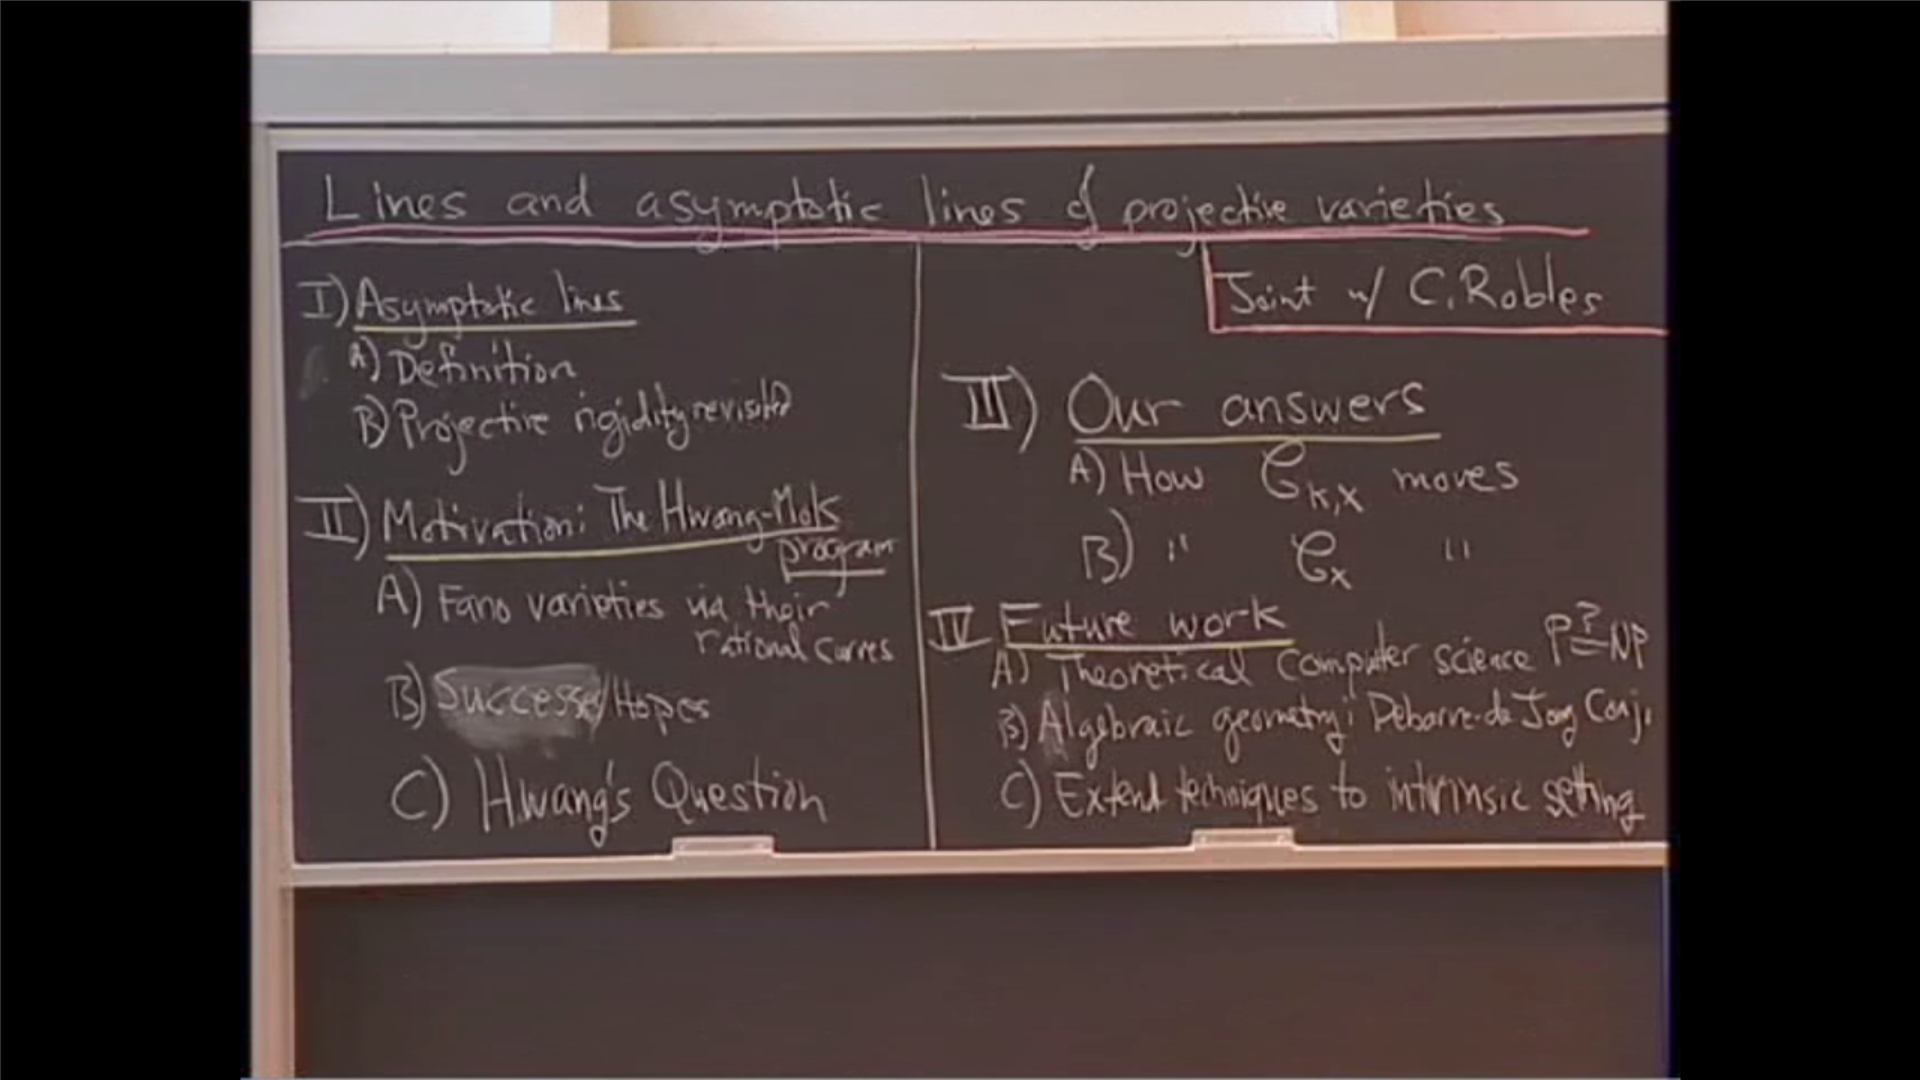 Lines and asymptotic lines of projective varieties
I) Asymptotic lines
A) Definition
B) Projective rigidity revisited
II) Motivation: The Hwang-Mok
program
A) Fano varieties via their
rational curves
B) Success/Hopes
C) Hwang's Question
Joint w/ C. Robles
III) Our answers
A) How 𝒞k,x moves
B) " 𝒞x "
IV Future work
A) Theoretical Computer science P ?= NP
B) Algebraic geometry: Debarre-de Jong Conj.
C) Extend techniques to intrinsic setting